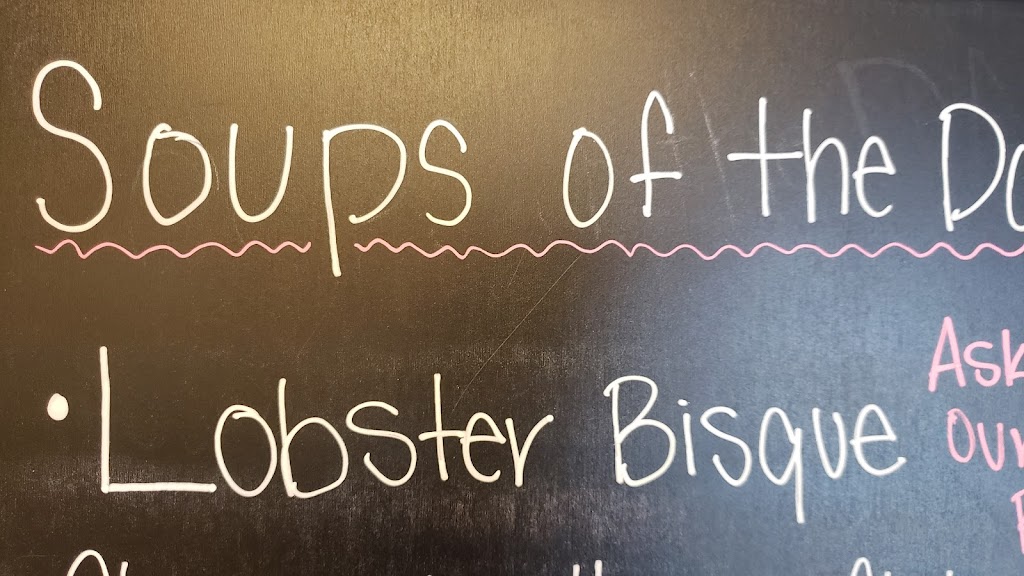 Soups of the Da
• Lobster Bisque
Ask
Our